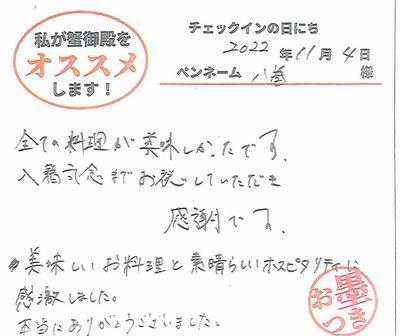 私が蟹御殿を
オススメ
します!
チェックインの日にち
2022年11月4日
ペンネーム 八巻 様
全ての料理が美味しかったです。
入籍記念までお祝していただき
感謝です。
美味しいお料理と素晴らしいホスピタリティに
感激しました。
本当にありがとうございました。
お墨つき